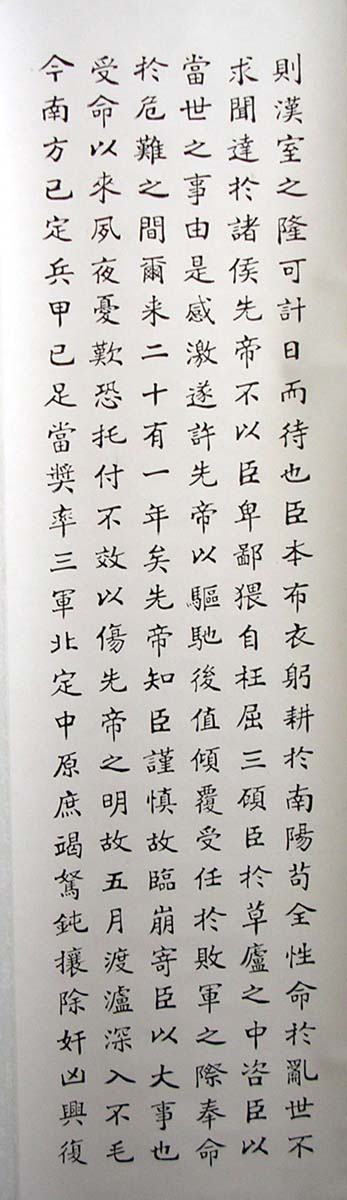 則漢室之隆可計日而待也臣本布衣躬耕於南陽苟全性命於亂世不
求聞達於諸侯先帝不以臣卑鄙猥自枉屈三顧臣於草廬之中咨臣以
當世之事由是感激遂許先帝以驅馳後值傾覆受任於敗軍之際奉命
於危難之間爾来二十有一年矣先帝知臣謹慎故臨崩寄臣以大事也
受命以來夙夜憂歎恐托付不效以傷先帝之明故五月渡瀘深入不毛
今南方已定兵甲已足當獎率三軍北定中原庶竭駑鈍攘除奸凶興復